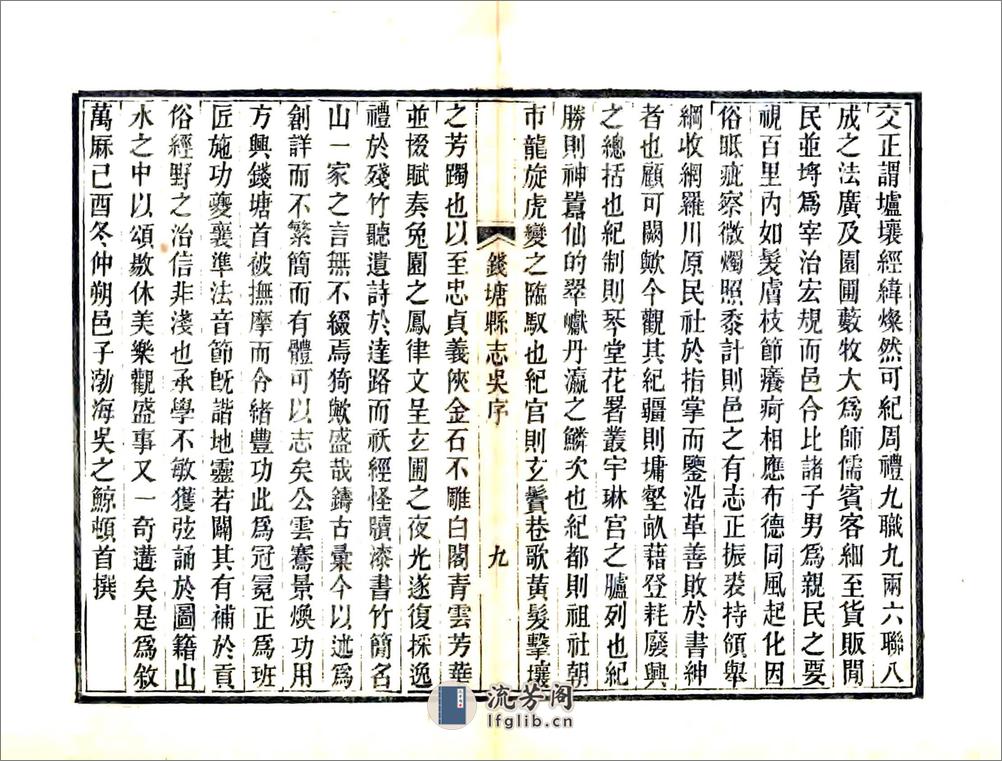 交正謂壚壤經緯燦然可紀周禮九職九兩六聯八
成之法廣及園圃藪牧大爲師儒賓客細至貨販閒
民並埒爲宰治宏䂓而邑令比諸子男爲親民之要
視百里內如髮膚枝節癢疴相應布德同風起化因
俗眂疵察微燭照黍計則邑之有志正振裘持領舉
綱收網羅川原民社於指掌而鑒沿革善敗於書紳
者也顧可闕歟今觀其紀疆則墉壑畝藉登耗廢興
之總括也紀制則琴堂花署叢宇琳宮之臚列也紀
勝則神囂仙的翠巘丹瀛之鱗次也紀都則祖社朝
市龍旋虎變之臨馭也紀官則玄鬢巷歌黃髮擊壤
錢塘縣志吳序 九
之芳躅也以至忠貞義俠金石不雕白閣青雲芳華
並掇賦奏兔園之鳳律文呈玄圃之夜光遂復採逸
禮於殘竹聽遺詩於達路而祇經怪牘漆書竹簡名
山一家之言無不綴焉猗歟盛哉鑄古彙今以述爲
創詳而不繁簡而有體可以志矣公雲騫景煥功用
方興錢塘首被撫摩而令緒豐功此爲冠冕正爲班
匠施功夔襄準法音節旣諧地靈若闢其有補於貢
俗經野之治信非淺也承學不敏獲弦誦於圖籍山
水之中以頌敭休美樂觀盛事又一奇遘矣是爲敘
萬厤己酉冬仲朔邑子渤海吳之鯨頓首撰
流芳阁
lfglib.cn